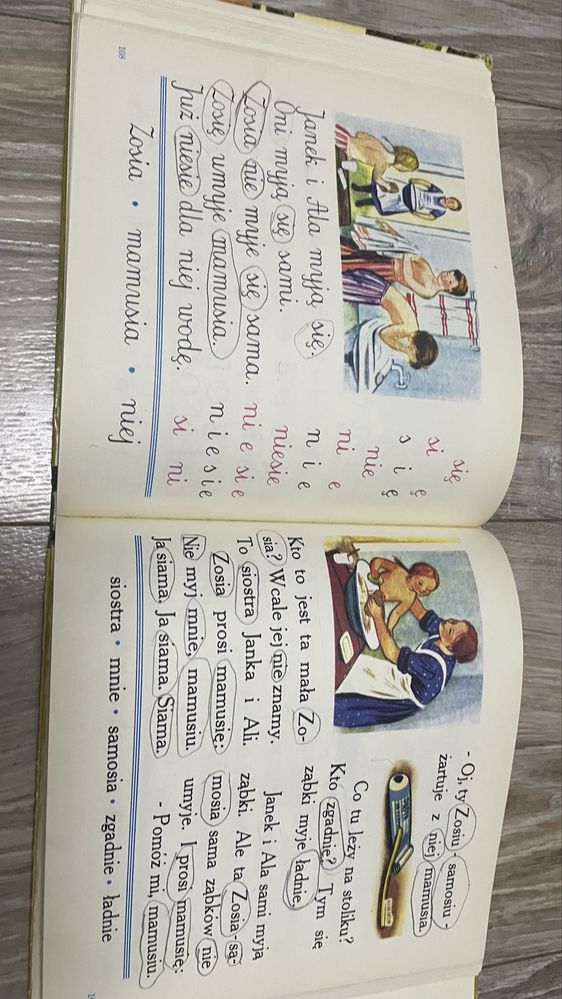 Janek i Ala myją się.
Oni myją się sami.
Zosia nie myje się sama.
Zosię umyje mamusia.
Już niesie dla niej wodę.
się
si ę
s i ę
nie
ni e
n i e
niesie
ni e si e
n i e s i e
si ni
Zosia • mamusia • niej
108
Kto to jest ta mała Zo-
sia? Wcale jej nie znamy.
To siostra Janka i Ali.
Zosia prosi mamusię:
Nie myj mnie, mamusiu.
Ja siama. Ja siama. Siama.
- Oj, ty Zosiu - samosiu -
żartuje z niej mamusia.
Co tu leży na stoliku?
Kto zgadnie? Tym się
ząbki myje ładnie.
Janek i Ala sami myją
ząbki. Ale ta Zosia - sa-
mosia sama ząbków nie
umyje. I prosi mamusię:
- Pomóż mi, mamusiu.
siostra • mnie • samosia • zgadnie • ładnie